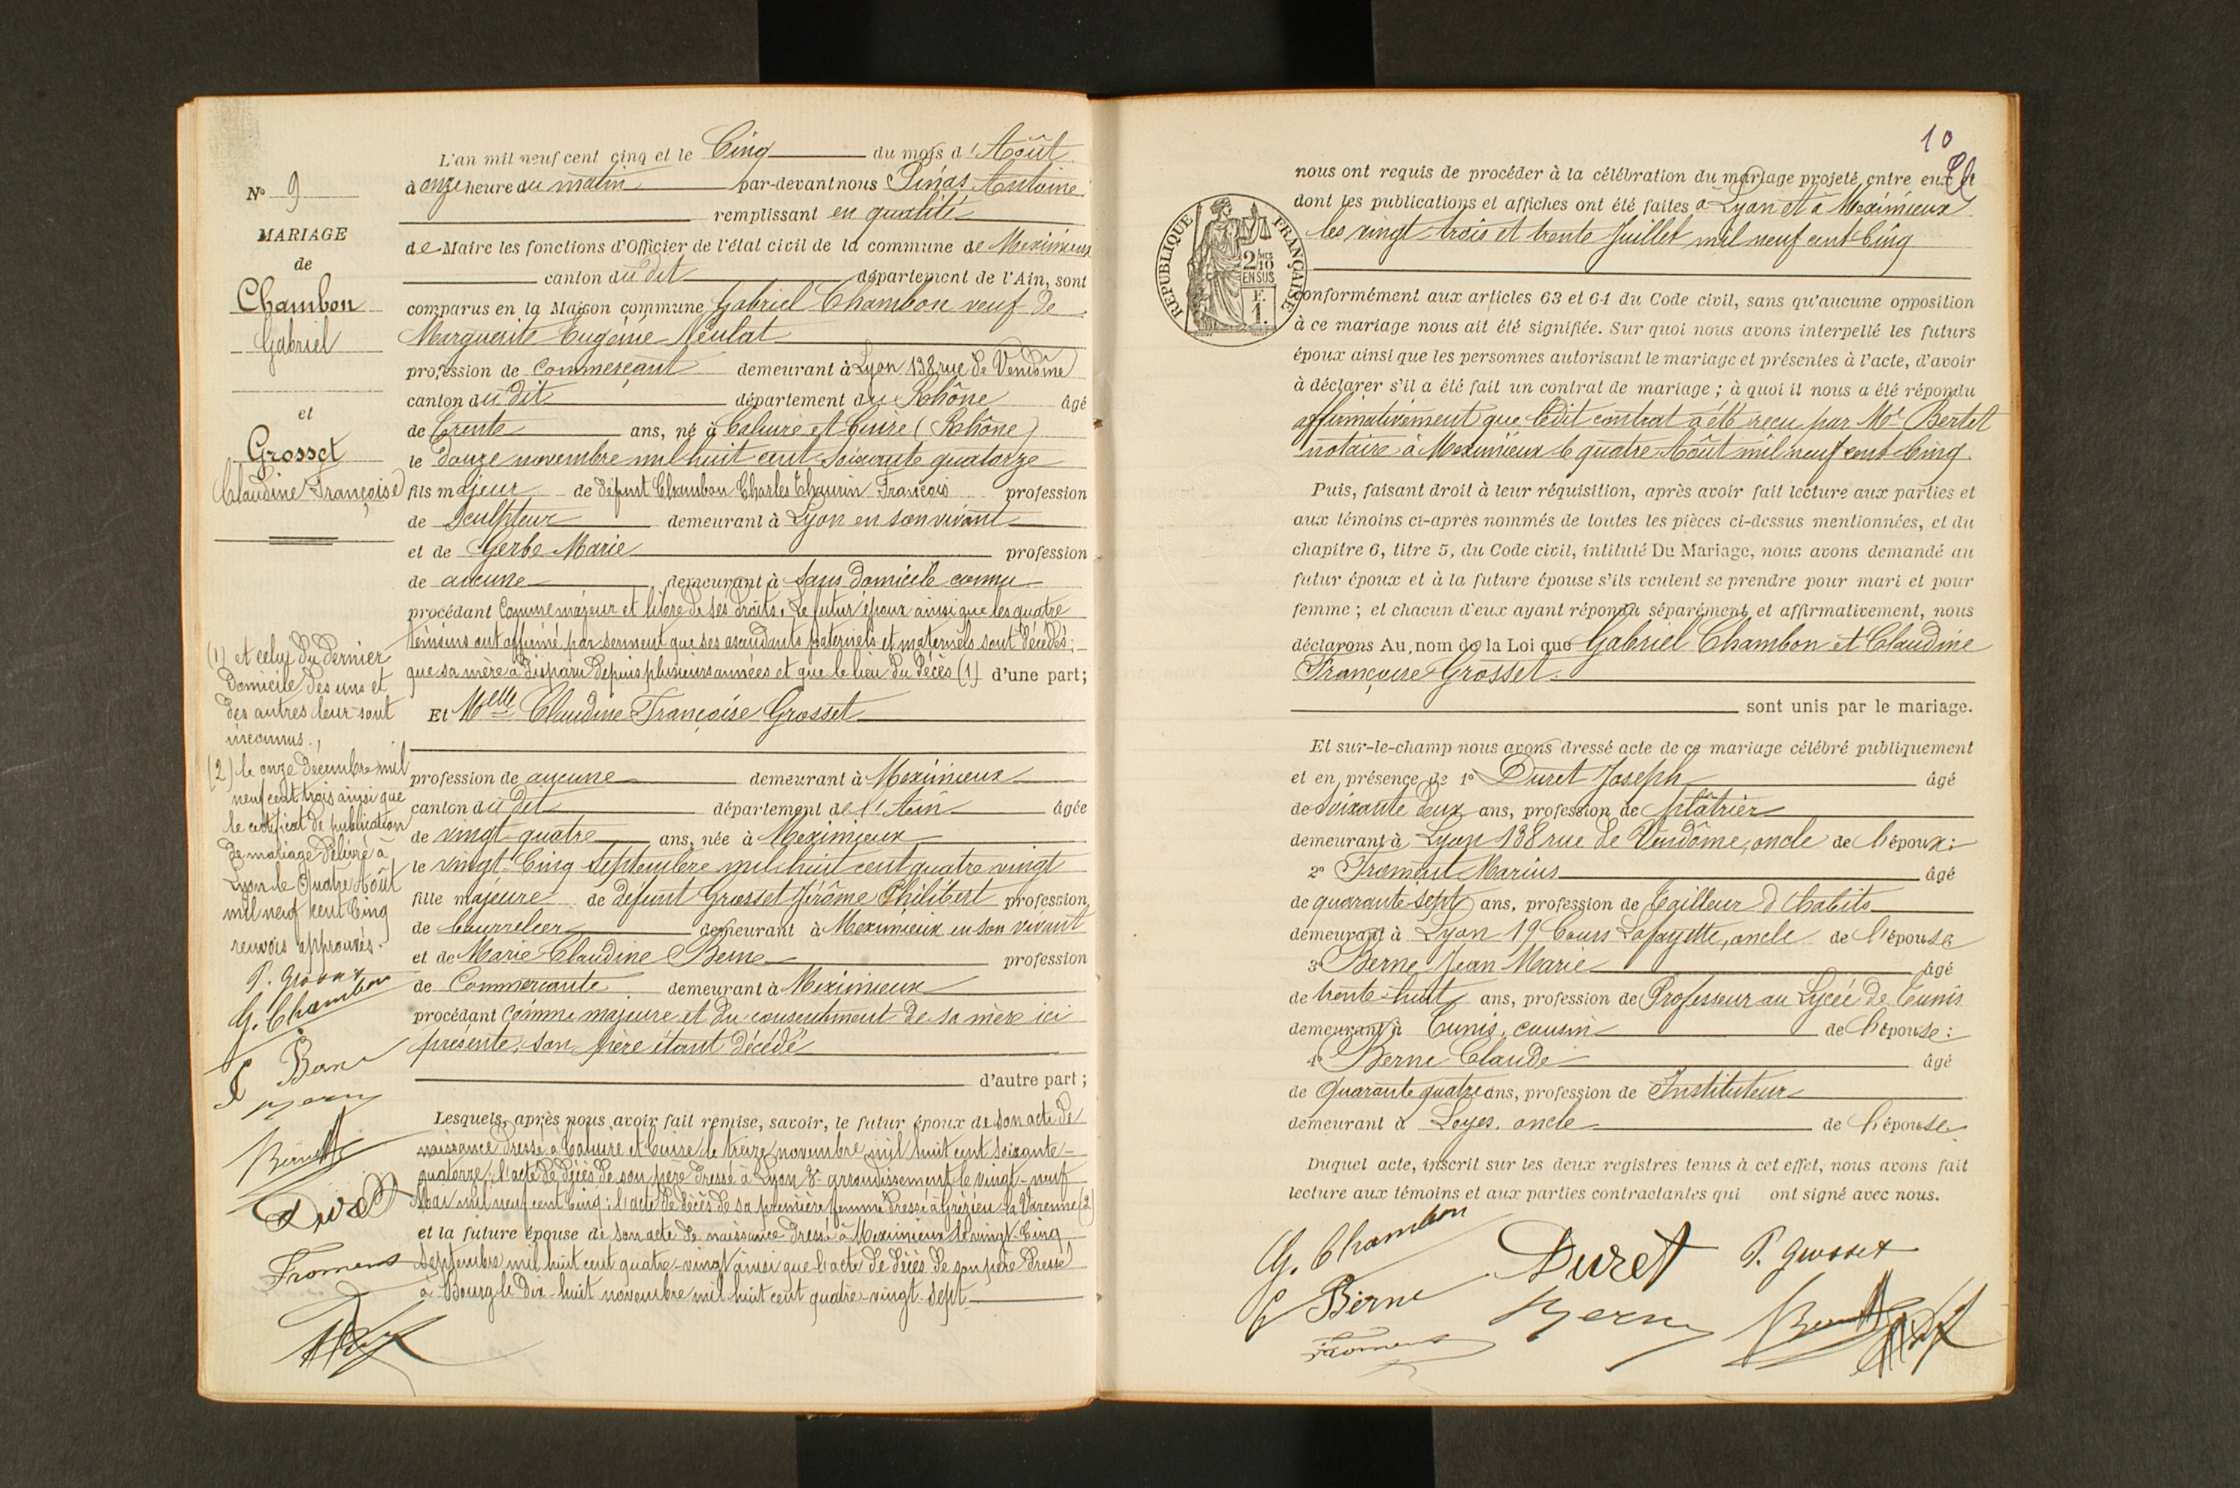 N° 9
MARIAGE
de
Chambon
Gabriel
et
Grosset
Claudine Françoise
L'an mil neuf cent cinq et le Cinq du mois d'Août
à onze heure du matin par-devant nous Antoine
remplissant en qualité
de Maire les fonctions d'Officier de l'état civil de la commune de Meximieux
canton du dit département de l'Ain, sont
comparus en la Maison commune Gabriel Chambon veuf de
Marguerite Eugénie
profession de commerçant demeurant à Lyon 138 rue de Vendôme
canton du dit département du Rhône âgé
de trente ans, né à Caluire et Cuire (Rhône)
le douze novembre mil huit cent soixante quatorze
fils majeur de défunt Chambon Charles François profession
de sculpteur demeurant à Lyon en son vivant
et de Gerbe Marie profession
de aucune demeurant à sans domicile connu
procédant comme majeur et libre de ses droits. Le futur époux ainsi que les quatre
témoins ont affirmé par serment que ses ascendants paternels et maternels sont décédés;
que sa mère a disparu depuis plusieurs années et que le lieu du décès (1) d'une part;
Et Melle Claudine Françoise Grosset
profession de aucune demeurant à Meximieux
canton du dit département de l'Ain âgée
de vingt-quatre ans, née à Meximieux
le vingt-cinq septembre mil huit cent quatre vingt
fille majeure de défunt Grosset Jérôme Philibert profession
de bourrelier demeurant à Meximieux en son vivant
et de Marie Claudine Berne profession
de Commerçante demeurant à Meximieux
procédant comme majeure et du consentement de sa mère ici
présente, son père étant décédé
d'autre part;
Lesquels, après nous avoir fait remise, savoir, le futur époux de son acte de
naissance dressé à Caluire et Cuire le treize novembre mil huit cent soixante-
quatorze; l'acte de décès de son père dressé à Lyon 3e arrondissement le vingt-neuf
Mai mil neuf cent cinq; l'acte de décès de sa première femme dressé à Grézieu la Varenne (2)
et la future épouse de son acte de naissance dressé à Meximieux le vingt-cinq
septembre mil huit cent quatre-vingt ainsi que l'acte de décès de son père dressé
à Bourg le dix-huit novembre mil huit cent quatre-vingt-sept
(1) et celui du dernier
domicile des uns et
des autres leur sont
inconnus.
(2) le onze décembre mil
neuf cent trois ainsi que
le certificat de publication
de mariage délivré à
Lyon le quatre Août
mil neuf cent cinq
renvois approuvés.
P. Grosset
G. Chambon
Berne
Berne
Duret
Froment
10
nous ont requis de procéder à la célébration du mariage projeté entre eux et
dont les publications et affiches ont été faites à Lyon et à Meximieux
les vingt-trois et trente Juillet mil neuf cent cinq
REPUBLIQUE FRANÇAISE
2/10 EN SUS
F. 1.
conformément aux articles 63 et 64 du Code civil, sans qu'aucune opposition
à ce mariage nous ait été signifiée. Sur quoi nous avons interpellé les futurs
époux ainsi que les personnes autorisant le mariage et présentes à l'acte, d'avoir
à déclarer s'il a été fait un contrat de mariage; à quoi il nous a été répondu
affirmativement que ledit contrat a été reçu par Me Bertet
notaire à Meximieux le quatre Août mil neuf cent cinq.
Puis, faisant droit à leur réquisition, après avoir fait lecture aux parties et
aux témoins ci-après nommés de toutes les pièces ci-dessus mentionnées, et du
chapitre 6, titre 5, du Code civil, intitulé Du Mariage, nous avons demandé au
futur époux et à la future épouse s'ils veulent se prendre pour mari et pour
femme; et chacun d'eux ayant répondu séparément et affirmativement, nous
déclarons Au nom de la Loi que Gabriel Chambon et Claudine
Françoise Grosset
sont unis par le mariage.
Et sur-le-champ nous avons dressé acte de ce mariage célébré publiquement
et en présence de 1° Duret Joseph âgé
de soixante deux ans, profession de plâtrier
demeurant à Lyon 138 rue de Vendôme, oncle de l'époux:
2° Froment Marius âgé
de quarante-sept ans, profession de tailleur d'habits
demeurant à Lyon 19 Cours Lafayette, oncle de l'épouse
3° Berne Jean Marie âgé
de trente-huit ans, profession de Professeur au Lycée de Tunis
demeurant à Tunis, cousin de l'épouse:
4° Berne Claude âgé
de quarante quatre ans, profession de Instituteur
demeurant à Loyes, oncle de l'épouse
Duquel acte, inscrit sur les deux registres tenus à cet effet, nous avons fait
lecture aux témoins et aux parties contractantes qui ont signé avec nous.
G. Chambon Duret P. Grosset
Berne Berne
Froment